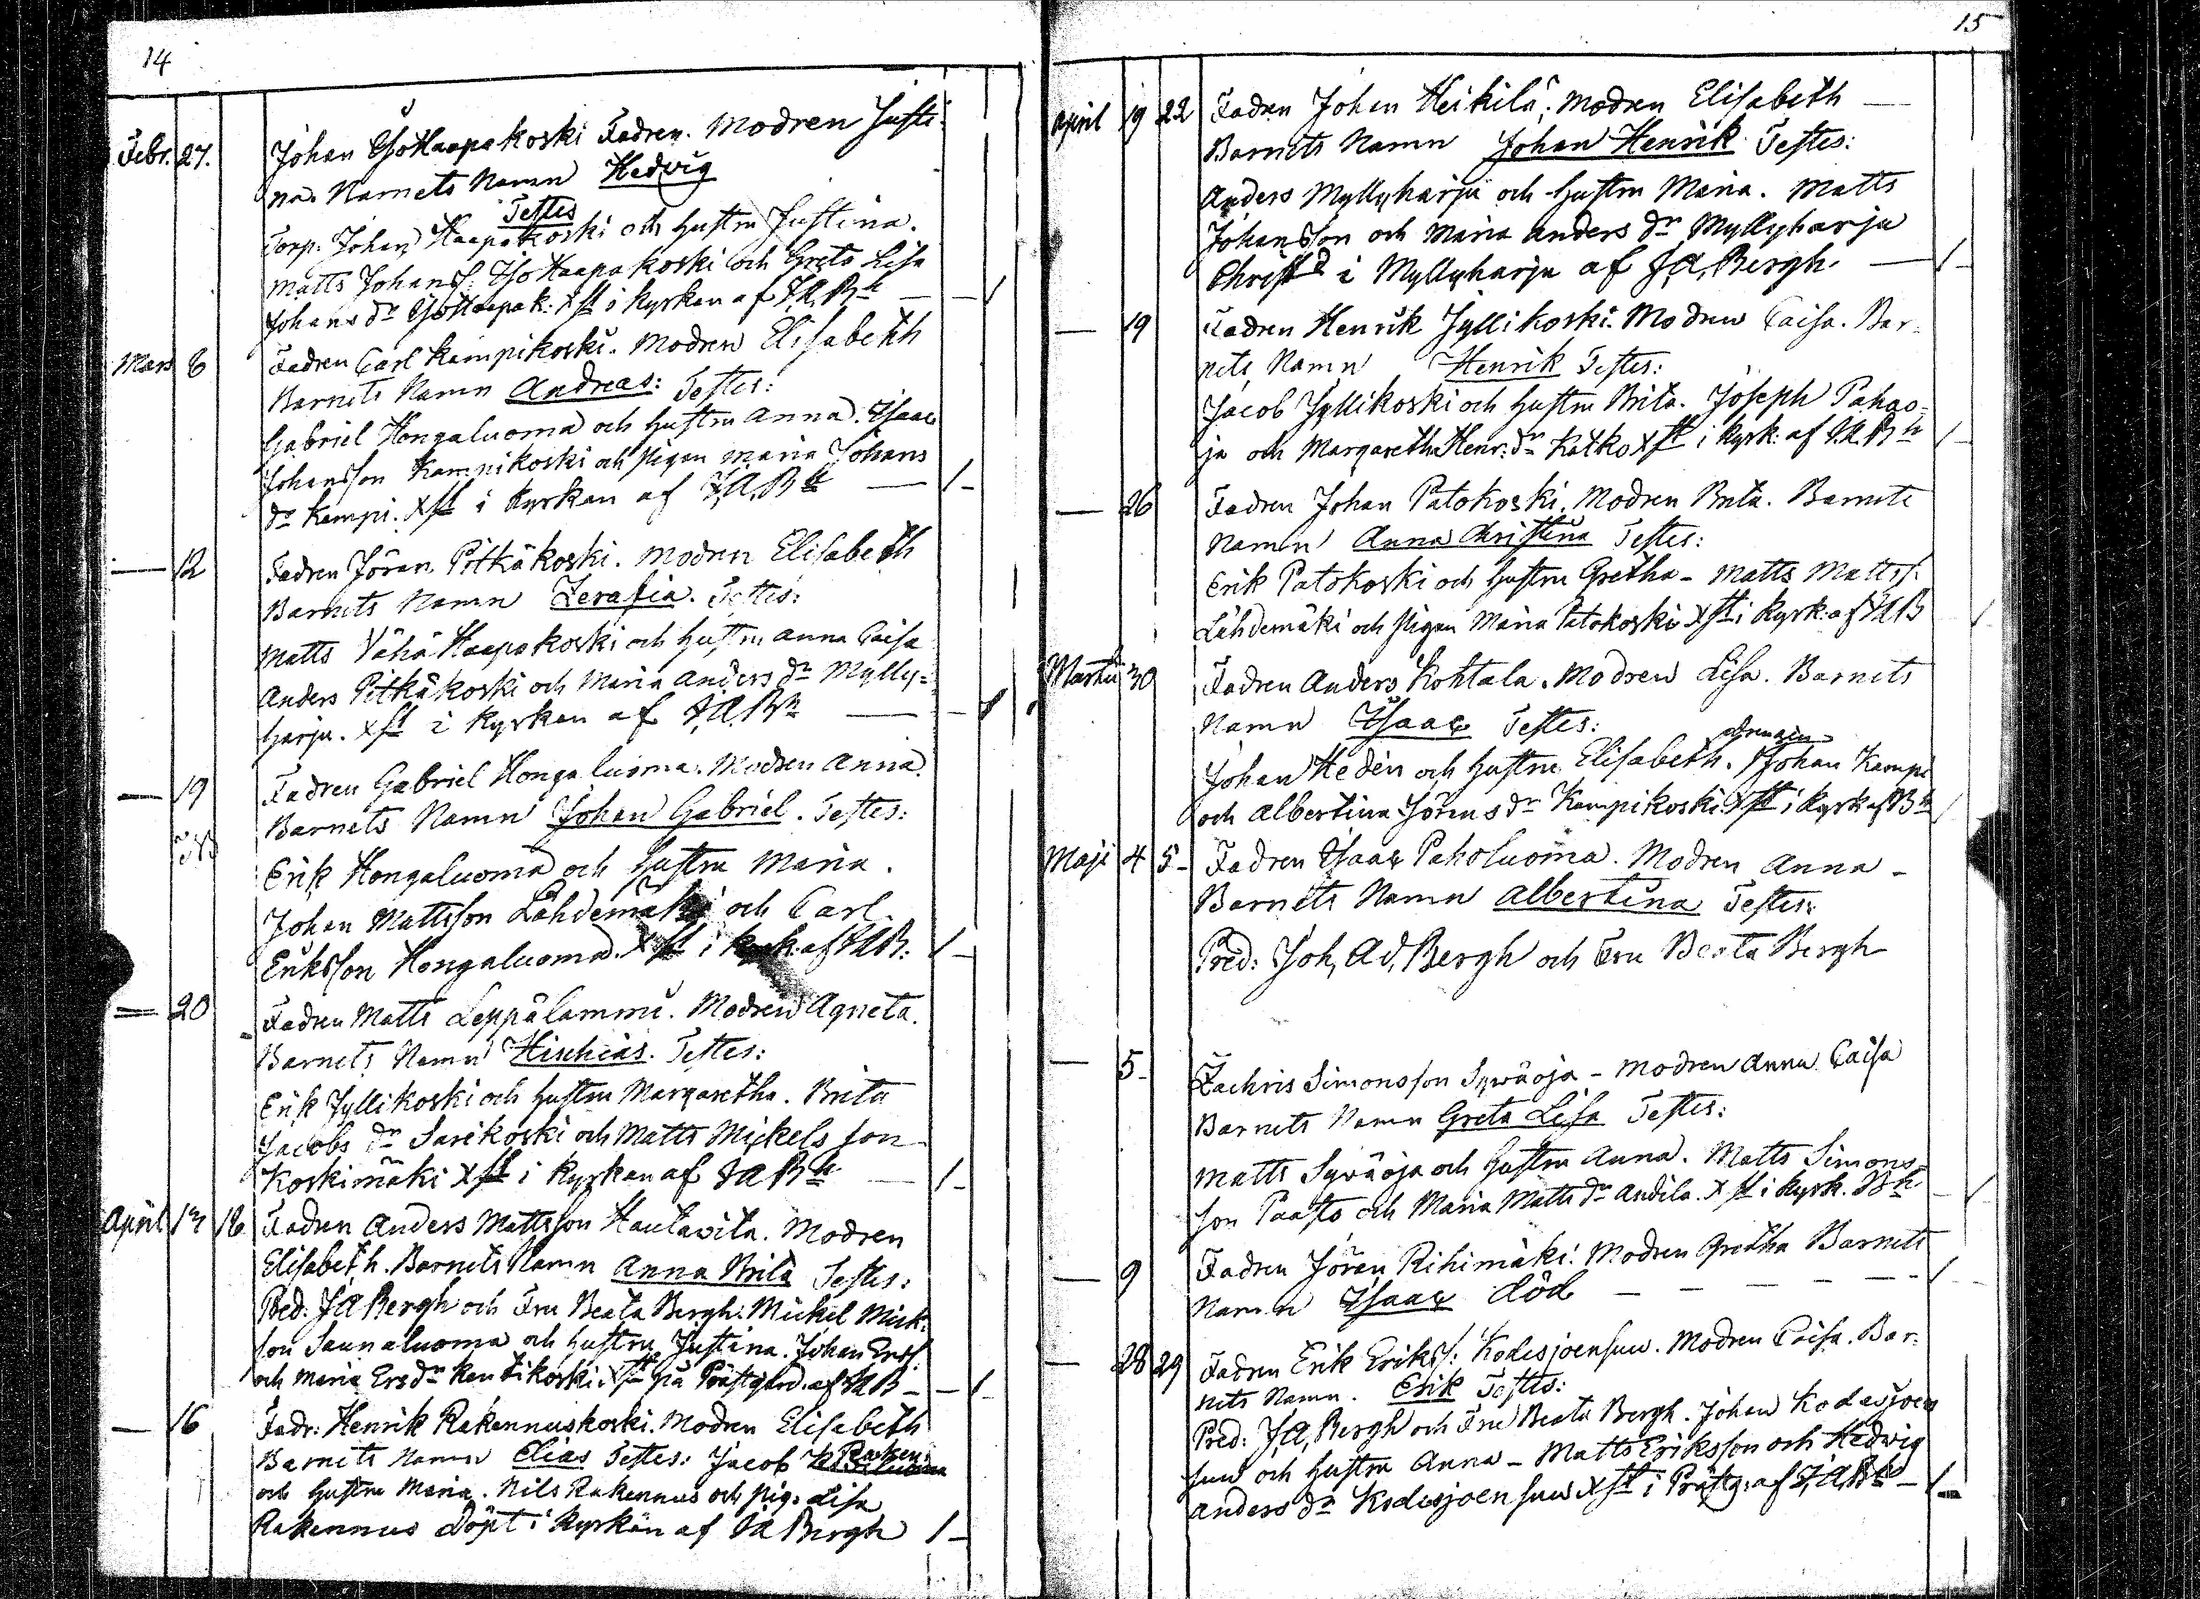 14
Febr. 27. Johan Iso Haapakoski Fadren. Modren Justi-
na. Narnets Namn Hedvig
Testes
Torp: Johan Haapakoski och hustru Justina.
Matts Johanss: Iso Haapakoski och Greta Lisa
Johans dr Iso Haapak. Xst i kyrkan af J.A.Bh — — /
Mars 6 Fadren Carl Kampikoski. Modren Elisabeth
Barnets Namn Andreas: Testes:
Gabriel Hongaluoma och hustru Anna. Isaac
Johansson Kampikoski och pigan Maria Johans
dr Kampi. Xst i kyrkan af J.A.Bh — /-
— 12 Fadren Jöran Pitkäkoski. Modren Elisabeth
Barnets Namn Zerafia. Testes:
Matts Vähä Haapakoski och hustru Anna Caisa
Anders Pitkäkoski och Maria Anders dr Mylly=
harju. Xst i kyrkan af J.A.Bh — - /
— 19 Fadren Gabriel Hongaluoma. Modren Anna.
Barnets Namn Johan Gabriel. Testes:
Erik Hongaluoma och hustru Maria.
Johan Mattsson Lähdemäki och Carl
Eriksson Hongaluoma. Xst i kyrk: af J.A.B: /-
— 20 Fadren Matts Leppälammi. Modren Agneta.
Barnets Namn Hischias. Testes:
Erik Jyllikoski och hustru Margaretha. Brita
Jacobs dr Sarikoski och Matts Mickels son
Koskimäki Xst i kyrkan af J A Bh — /-
April 13 16 Fadren Anders Mattsson Hautavita. Modren
Elisabeth. Barnets Namn Anna Brita Testes:
Pred: J A Bergh och Fru Beata Bergh. Mickel Mick:
son Saunaluoma och hustru Justina. Johan Erss:
och Maria Ers dr Rentikoski. Xst på Prästgård. af J A B - - /-
— 16 Fadr: Henrik Rakennuskoski. Modren Elisabeth
Barnets Namn Elias Testes: Jacob Raken:
och hustru Maria. Nils Rakennus och pig: Lisa
Rakennus Döpt i kyrkan af J A Bergh /-
15
April 19 22 Fadren Johan Heikilä; Modren Elisabeth —
Barnets Namn Johan Henrik Testes:
Anders Myllyharju och hustru Maria. Matts
Johansson och Maria Anders dr Myllyharju
Christd i Myllyharju af J.A.Bergh. — /-
— 19 Fadren Henrik Jyllikoski. Modren Caisa. Bar-
nets Namn Henrik Testes:
Jacob Jyllikoski och hustru Brita. Joseph Pahao-
ja och Margareth Henr: dr Katko Xst i kyrk: af J.A.Bh /-
— 26 Fadren Johan Patokoski. Modren Brita. Barnets
Namn Anna Christina Testes:
Erik Patokoski och hustru Gretha - Matts Mattss:
Lähdemäki och pigan Maria Patokoski Xst i kyrk: af J A B /
Martii 30 Fadren Anders Kohtala. Modren Lisa. Barnets
Namn Isaac Testes:
drengen
Johan Hedén och hustru Elisabeth. Johan Kampi
och Albertina Jörans dr Kampikoski. Xst i kyrk af Bh /
Maji 4 5- Fadren Isaac Paholuoma. Modren Anna -
Barnets Namn Albertina Testes:
Pred: Joh, Ad, Bergh och Fru Beata Bergh
— 5- Zachris Simonsson Sywäoja - Modren Anna Caisa
Barnets Namn Greta Lisa Testes:
Matts Sywäoja och hustru Anna. Matts Simons-
son Paasto och Maria Matts dr Andila. Xst i kyrk. Bh - /-
— 9 Fadren Jöran Rihimäki. Modren Gretha Barnets
Namn Isaac död — — — — - /-
— 28 29 Fadren Erik Erikss: Kodesjoensuu. Modren Caisa. Bar-
nets Namn. Erik Testes:
Pred: J,A, Bergh och Fru Beata Bergh. Johan Kodesjoen
suu och hustru Anna - Matts Eriksson och Hedwig
Anders dr Kodesjoensuu Xst i Prästg: af J,A,Bh - /-